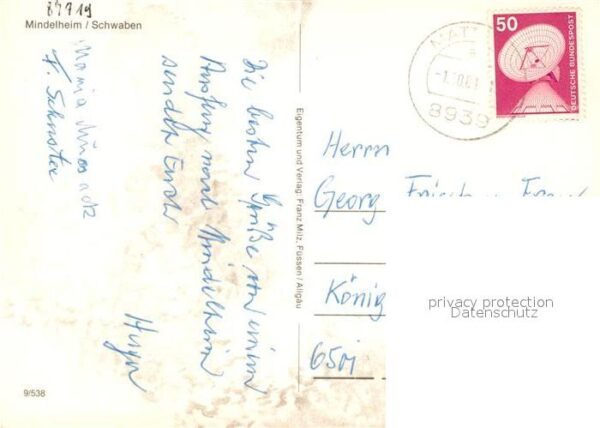 84719
Mindelheim / Schwaben
Die besten Grüße von einem
Ausflug nach Mindelheim
sendet Euch
Maria
F. Schuster
9/538
Eigentum und Verlag: Franz Milz, Füssen / Allgäu
MATT
8939
50
DEUTSCHE BUNDESPOST
Herrn
Georg
König
privacy protection
Datenschutz